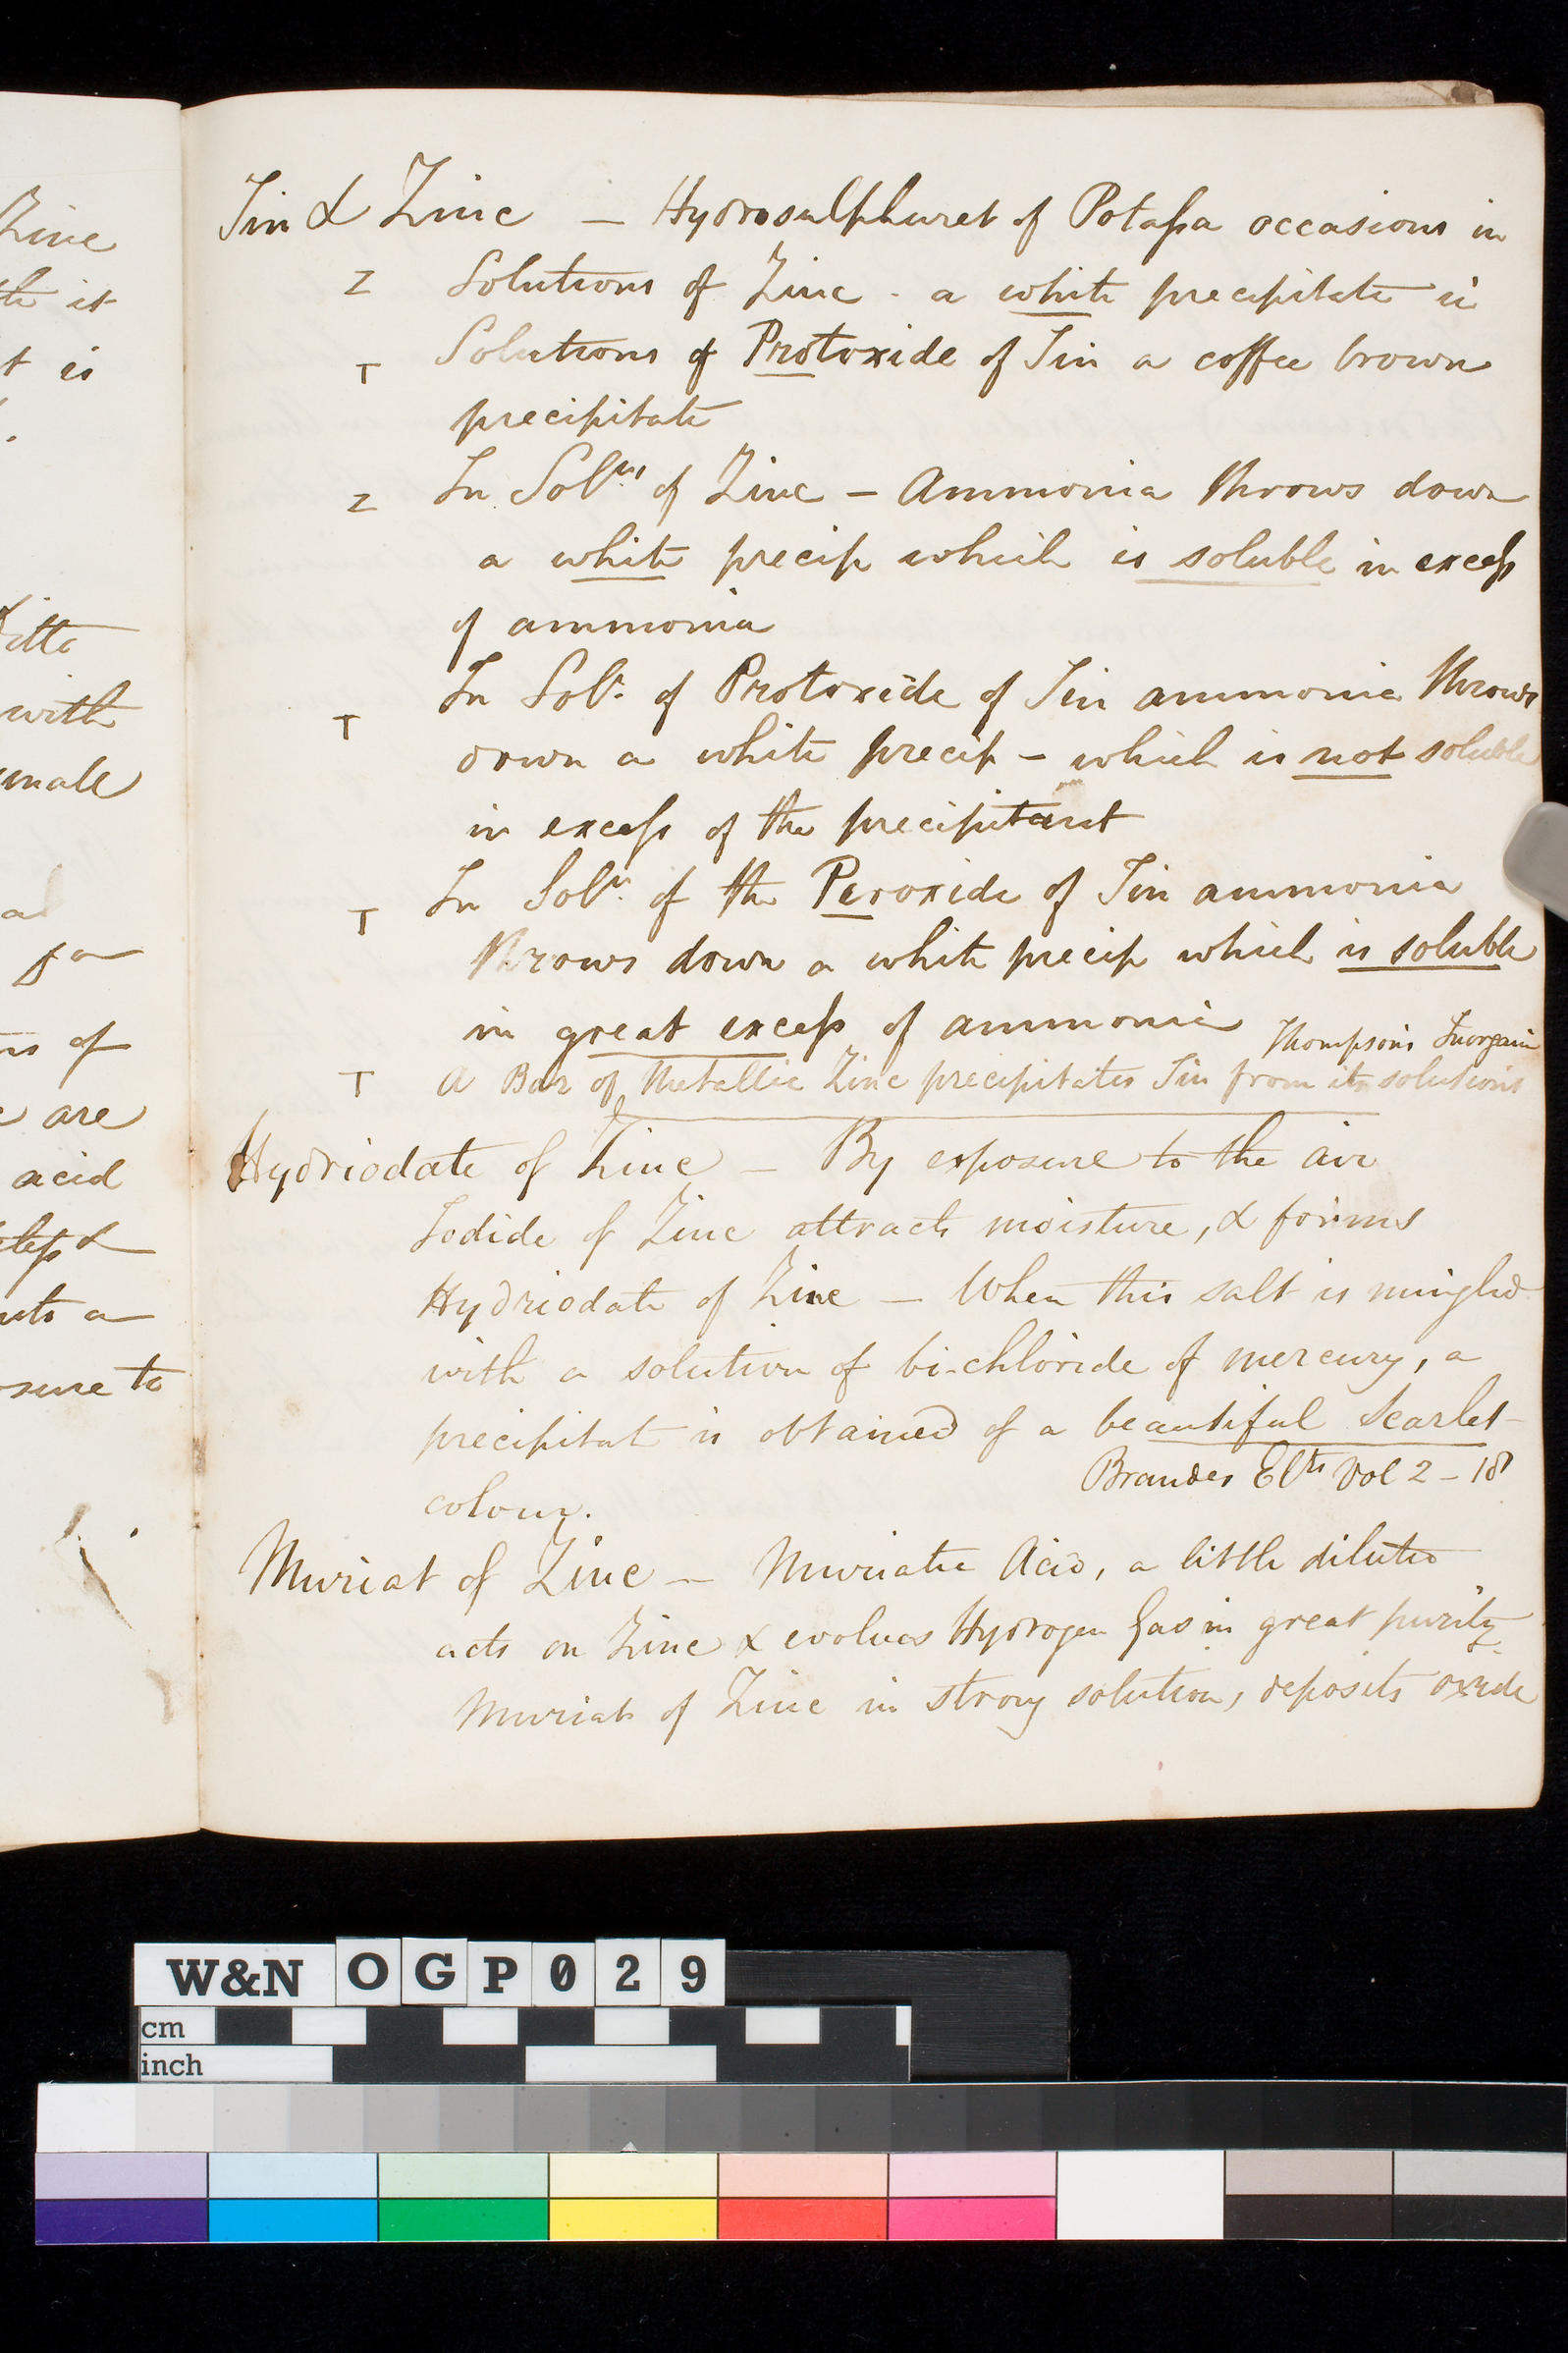 Zinc
it
t is
Ditto
with
of
are
acid
a
to
Tin & Zinc — Hydrosulphuret of Potassa occasions in
Z Solutions of Zinc - a white precipitate in
T Solutions of Protoxide of Tin a coffee brown
precipitate
Z In Solns of Zinc — Ammonia throws down
a white precip which is soluble in excess
of ammonia
T In Soln of Protoxide of Tin ammonia throws
down a white precip — which is not soluble
in excess of the precipitant
T In Soln of the Peroxide of Tin ammonia
throws down a white precip which is soluble
in great excess of ammonia Thompson's Inorganic
T A Bar of Metallic Zinc precipitates Tin from its solutions
Hydriodate of Zinc — By exposure to the air
Iodide of Zinc attracts moisture, & forms
Hydriodate of Zinc — When this salt is mingled
with a solution of bi-chloride of mercury, a
precipitate is obtained of a beautiful Scarlet
colour. Brandes Elts Vol 2 - 18
Muriat of Zinc — Muriatic Acid, a little diluted
acts on Zinc & evolves Hydrogen Gas in great purity
Muriat of Zinc in strong solution, deposits oxide
W&N OGP029
cm
inch